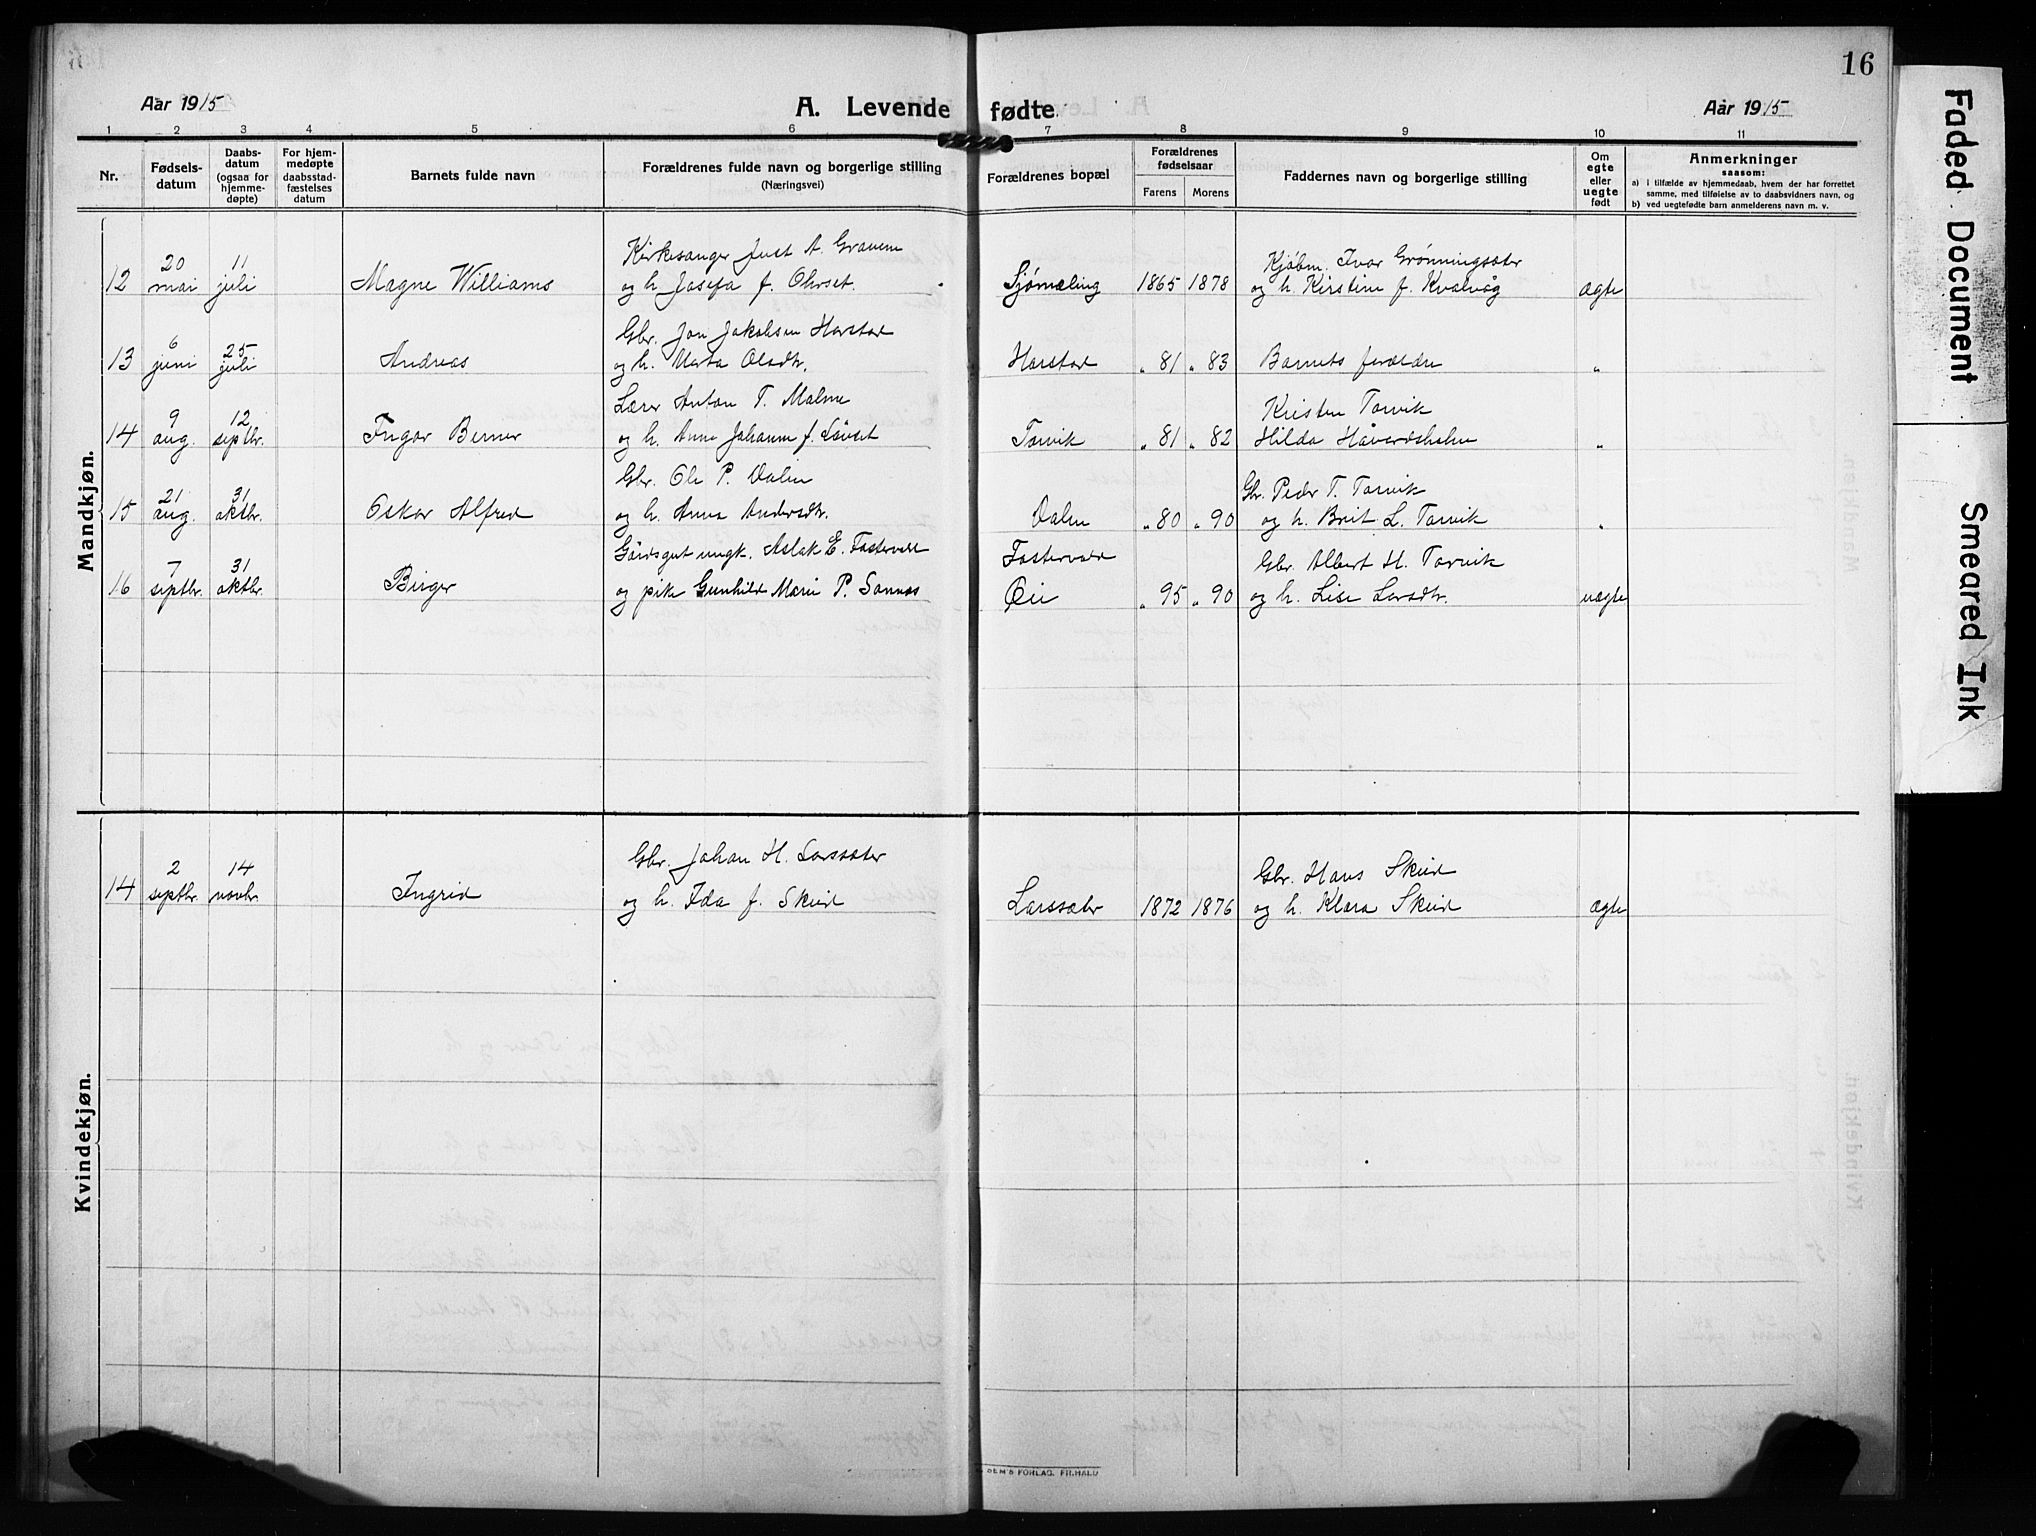 16
Aar 1915
A. Levende fødte.
Aar 1915
1 2 3 4 5 6 7 8 9 10 11
Nr.
Fødsels-
datum
Daabs-
datum
(ogsaa for
hjemme-
døpte)
For hjem-
medøpte
daabsstad-
fæstelses
datum
Barnets fulde navn
Forældrenes fulde navn og borgerlige stilling
(Næringsvei)
Forældrenes bopæl
Forældrenes
fødselsaar
Farens Morens
Faddernes navn og borgerlige stilling
Om
egte
eller
uegte
født
Anmerkninger
saasom:
a) i tilfælde av hjemmedaab, hvem der har forrettet
samme, med tilføielse av to daabsvidners navn, og
b) ved uegtefødte barn anmelderens navn m. v.
Mandkjøn.
20 11 Kirkesanger Just A. Gravem Kjøbm. Ivar Grønningsæter
12 mai juli Magne Williams og h. Josefa f. Ohrset. Sjømæling 1865 1878 og h. Kirstine f. Kvalvåg ægte
6 25 Gbr. Jon Jakobsen Harstad
13 juni juli Andreas og h. Marta Olsdtr. Harstad " 81 " 83 Barnets forældre "
9 12 Lærer Anton T. Malme Kristen Tornvik
14 aug. septbr. Ingar Berner og h. Anna Johanne f. Løvset Tornvik " 81 " 82 Hilda Håvardsholm "
21 31 Gbr. Ole P. Valen Gbr. Peder T. Tornvik
15 aug. oktbr. Oskar Alfred og h. Anna Andersdtr. Valen " 80 " 90 og h. Brit L. Tornvik "
7 31 Gårdsgut ungk. Aslak E. Fostervold Fostervold Gbr. Albert H. Tornvik
16 septbr. oktbr. Birger og pike Gunhild Marie P. Sannæs Øie " 95 " 90 og h. Lise Larsdtr. uægte
Kvindekjøn.
2 14 Gbr. Johan H. Larssæter Gbr. Hans Skeid
14 septbr. novbr. Ingrid og h. Ida f. Skeid Larssæter 1872 1876 og h. Klara Skeid ægte
SEM'S FORLAG, FR.HALD
Faded Document
Smeared Ink